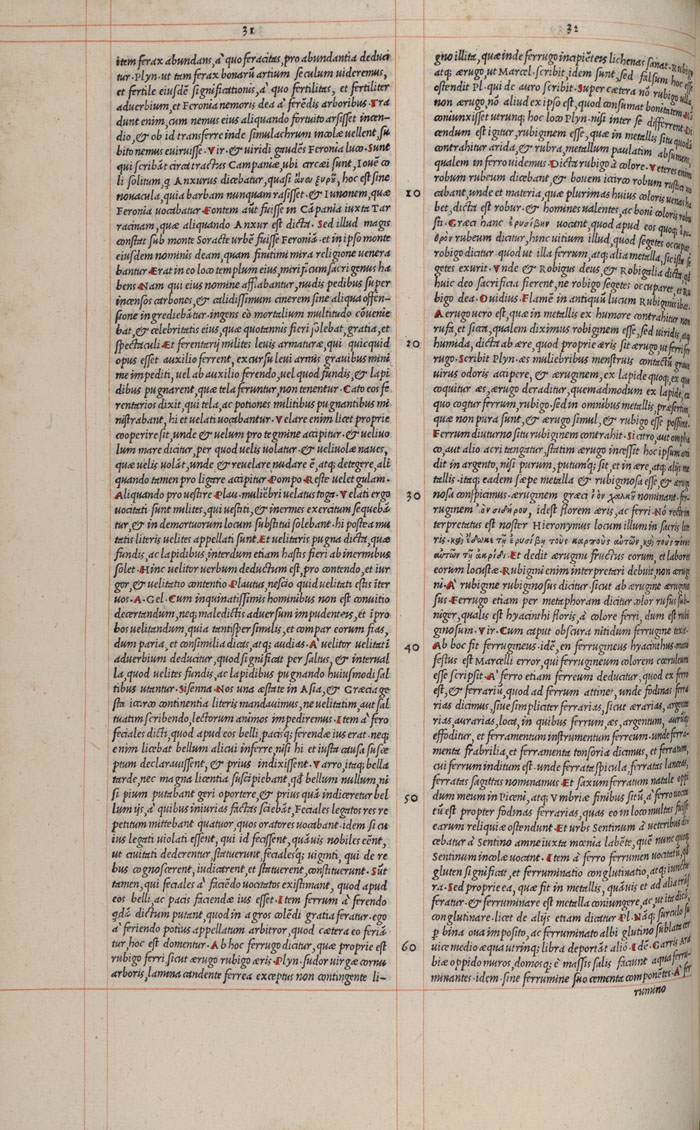 31
item ferax abundans, a' quo feracitas, pro abundantia deduci
tur. Plyn. ut tam ferax bonarũ artium seculum uideremus,
et fertile eiusdẽ significationis, a' quo fertilitas, et fertiliter
aduerbium, et Feronia nemoris dea a' ferẽdis arboribus. Tra
dunt enim, cum nemus eius aliquando fortuito arsisset incen-
dio, & ob id transferre inde simulachrum incolæ uellent, su
bito nemus euiruisse. Vir. & uiridi gaudẽs Feronia luco. Sunt
qui scribãt circa tractus Campaniæ, ubi circæi sunt, Iouẽ co
li solitum, q Anxurus dicebatur, quasi ἄνευ ξυροῦ, hoc est sine
nouacula, quia barbam nunquam rasisset. & Iunonem, quæ
Feronia uocabatur. Fontem aũt fuisse in Cãpania iuxta Tar
racinam, quæ aliquando Anxur est dicta. Sed illud magis
constat sub monte Soracte urbẽ fuisse Feroniã. et in ipso monte
eiusdem nominis deam, quam finitimi mira religione venera
bantur. Erat in eo loco templum eius, mirificum sacri genus ha
bens. Nam qui eius nomine afflabantur, nudis pedibus super
incensos carbones, & calidissimum cinerem sine aliqua offen-
sione ingrediebãtur. ingens eò mortalium multitudo cõuenie
bat, & celebritatis eius, quæ quotannis fieri solebat, gratia, et
spectaculi. Et ferentarij milites leuis armaturæ, qui quicquid
opus esset auxilio ferrent, excursu leui armis grauibus mini
me impediti, uel ab auxilio ferendo, uel quod fundis, & lapi
dibus pugnarent, quæ tela feruntur, non tenentur. Cato eos fe
rentarios dixit, qui tela, ac potiones militibus pugnantibus mi
nistrabant, hi et uelati uocabantur. Velare enim licet proprie
cooperire sit, unde & uelum pro tegmine accipitur. & ueliuo
lum mare dicitur, per quod uelis uolatur. & ueliuolæ naues,
quæ uelis uolãt, unde & reuelare nudare ẽ, atq; detegere, ali
quando tamen pro ligare accipitur. Pompo. Reste uelet gulam.
Aliquando pro uestire. Plau. muliẽbri uelatus toga. Velati ergo
uocitati sunt milites, qui uestiti, & inermes exercitum sequebã
tur, & in demortuorum locum substitui solebant. hi postea mu
tatis literis uelites appellati sunt. Et uelitaris pugna dicta, quæ
fundis, ac lapidibus, interdum etiam hastis fieri ab inermibus
solet. Hinc uelitor uerbum deductum est, pro contendo, et iur
gor, & uelitatio contentio. Plautus, nescio quid uelitati estis iter
uos. A. Gel. Cum inquinatissimis hominibus non est conuitio
decertandum, neq; maledictis aduersum impudenteis, et ĩpro
bos uelitandum, quia tantisper similis, et compar eorum fias,
dum paria, et consimilia dicas, atq; audias. A' uelitor uelitatĩ
aduerbium deducitur, quod significat per saltus, & interual
la, quod uelites fundis, ac lapibus pugnando huiusmodi sal
tibus utantur. Sisenna. Nos una æstate in Asia, & Græcia ge
sta idcirco continentia literis mandauimus, ne uelitatim, aut sal
tuatim scribendo, lectorum animos impediremus. Item a' fero
feciales dicti, quod apud eos belli, pacisq; ferendæ ius erat. neq;
enim licebat bellum alicui inferre, nisi hi et iusta causa susce
ptum declarauissent, & prius indixissent. Varro, itaq; bella
tarde, nec magna licentia suscipiebant, qđ bellum nullum, ni
si pium putabant geri oportere, & prius quã indiceretur bel
lum ijs, a' quibus iniurias factas sciebãt, Feciales legatos res re
petitum mittebant quatuor, quos oratores uocabant. idem si cu
ius legati uiolati essent, qui id fecissent, quãuis nobiles eẽnt,
ut ciuitati dederentur statuerunt, fecialesq; uiginti, qui de re
bus cognoscerent, iudicarent, et statuerent, constituerunt. Sũt
tamen, qui feciales a' faciẽdo uocitatos existimant, quod apud
eos belli, ac pacis faciendæ ius esset. Item ferrum a' ferendo
qđã dictum putant, quod in agros colẽdi gratia feratur. ego
a' feriendo potius appellatum arbitror, quod cætera eo feriã
tur, hoc est domentur. Ab hoc ferrugo dicitur, quæ proprie est
rubigo ferri sicut ærugo rubigo æris. Plyn. sudor uirgæ cornu
arboris, lamina candente ferrea exceptus non contingente li-
10
20
30
40
50
60
32
gno illita, quæ inde ferrugo incipiẽteis lichenas sanat. Rubigo
atq; ærugo, ut Marcel. scribit, idem sunt, sed falsum hoc esse
ostendit Pl. qui de auro scribit. Super cætera nõ rubigo ulla,
non ærugo, nõ aliud ex ipso est, quod consumat bonitatem. Nõ
coniunxisset utrunq; hoc loco Plyn. nisi inter se differrent. Di
cendum est igitur, rubiginem esse, quæ in metallis situ quodã
contrahitur arida, & rubra, metallum paulatim absumens,
qualem in ferro uidemus. Dicta rubigo a' colore. Veteres enim
robum rubeum dicebant, & bouem idcirco robum rusticis di
cebant, unde et materia, quæ plurimas huius coloris uenas ha
bet, dicta est robur. & homines ualentes, ac boni coloris robu
sti. Græci hanc ἐρυσίβην uocant, quod apud eos quoq; ἐρυ-
θρὸν rubeum dicitur, hinc uitium illud, quod segetes occupat
robigo dicitur. quod ut illa ferrum, atq; alia metalla, sic ista se
getes exurit. Vnde & Robigus deus, & Robigalia dicta, qđ
huic deo sacrificia fierent, ne robigo segetes occuparet, et Ru
bigo dea. Ouidius. Flamẽ in antiquũ lucum Rubiginis ibat.
Aerugo uero est, quæ in metallis ex humore contrahitur non
rufa, et sicca, qualem diximus robiginem esse, sed uiridis, atq;
humida, dicta ab ære, quod proprie æris sit ærugo, ut ferri fer
rugo. Scribit Plyn. æs muliebribus menstruis contactũ graue
uirus odoris accipere, & æruginem, ex lapide quoq; ex quo
coquitur æs, ærugo deraditur, quemadmodum ex lapide, ex
quo coquitur ferrum, rubigo. sed in omnibus metallis, præsertim
quæ non pura sunt, & ærugo simul, & rubigo esse possunt.
Ferrum diuturno situ rubiginem contrahit. Si citro, aut ompha
co, aut alio acri tangatur, statim ærugo incessit hoc ipsum acci
dit in argento, nisi purum, putumq; sit, et in ære, atq; alijs me
tallis. itaq; eadem sæpe metalla & rubiginosa esse, & erugi
nosa conspicimus. æruginem græci ἰὸν χαλκοῦ nominant. fer
ruginem ἰὸν σιδήρου, idest florem æris, ac ferri. Nõ recte in
terpretatus est noster Hieronymus locum illum in sacris lite
ris. καὶ ἔδωκε τῇ ἐρυσίβῃ τοὺς καρποὺς αὐτῶν, καὶ τοὺς πόνους
αὐτῶν τῇ ἀκρίδι. Et dedit ærugini fructus eorum, et labores
eorum locustæ. Rubigini enim interpretari debuit, non ærugi
ni. A' rubigine rubiginosus dicitur. sicut ab ærugine ærugino
sus. Ferrugo etiam per metaphoram dicitur color rufus sub-
niger, qualis est hyacinthi floris, a' colore ferri, dum est rubi
ginosum. Vir. Cum caput obscura nitidum ferrugine texit.
Ab hoc fit ferrugineus. idẽ, en ferrugineus hyacinthus. mani
festus est Marcelli error, qui ferrugineum colorem cœruleum
esse scripsit. A' ferro etiam ferreum deducitur, quod ex ferro
est, & ferrariũ, quod ad ferrum attinet, unde fodinas ferra
rias dicimus, siue simpliciter ferrarias, sicut ærarias, argenta
rias, aurarias, loca, in quibus ferrum, æs, argentum, aurũq;
effoditur, et ferramentum instrumentum ferreum. unde ferra-
menta frabrilia, et ferramenta tonsoria dicimus, et ferratum,
cui ferrum inditum est. unde ferratas picula, ferratas lanceas,
ferratas sagittas nominamus. Et Saxum ferratum natale oppi
dum meum in Piceni, atq; Vmbriæ finibus sitũ, a' ferro uocita
tũ est propter fodinas ferrarias, quas eo in loco multas fuisse
earum reliquiæ ostendunt. Et urbs Sentinum a' ueteribus di
cebatur a' Sentino amne iuxta mœnia labẽte, quẽ nunc quoq;
Sentinum incolæ uocant. Item a' ferro ferrumen uocatũ, qđ
gluten significat, et ferruminatio conglutinatio, atq; iunctu
ra. Sed proprie ea, quæ fit in metallis, quãuis et ad alia trãs
feratur. & ferruminare est metalla coniungere, ac, ut ita dicã,
conglutinare. licet de alijs etiam dicatur. Pl. Nãq; surculo su
p bina oua imposito, ac ferruminato albi glutino sublatæ cer
uice medio æqua utrinq; libra deportãt aliò. Idẽ. Garris Ara
biæ oppido muros, domosq; è massis salis faciunt aqua ferru-
minantes. idem. sine ferrumine suo cementa componẽtes. A' fer
rumino